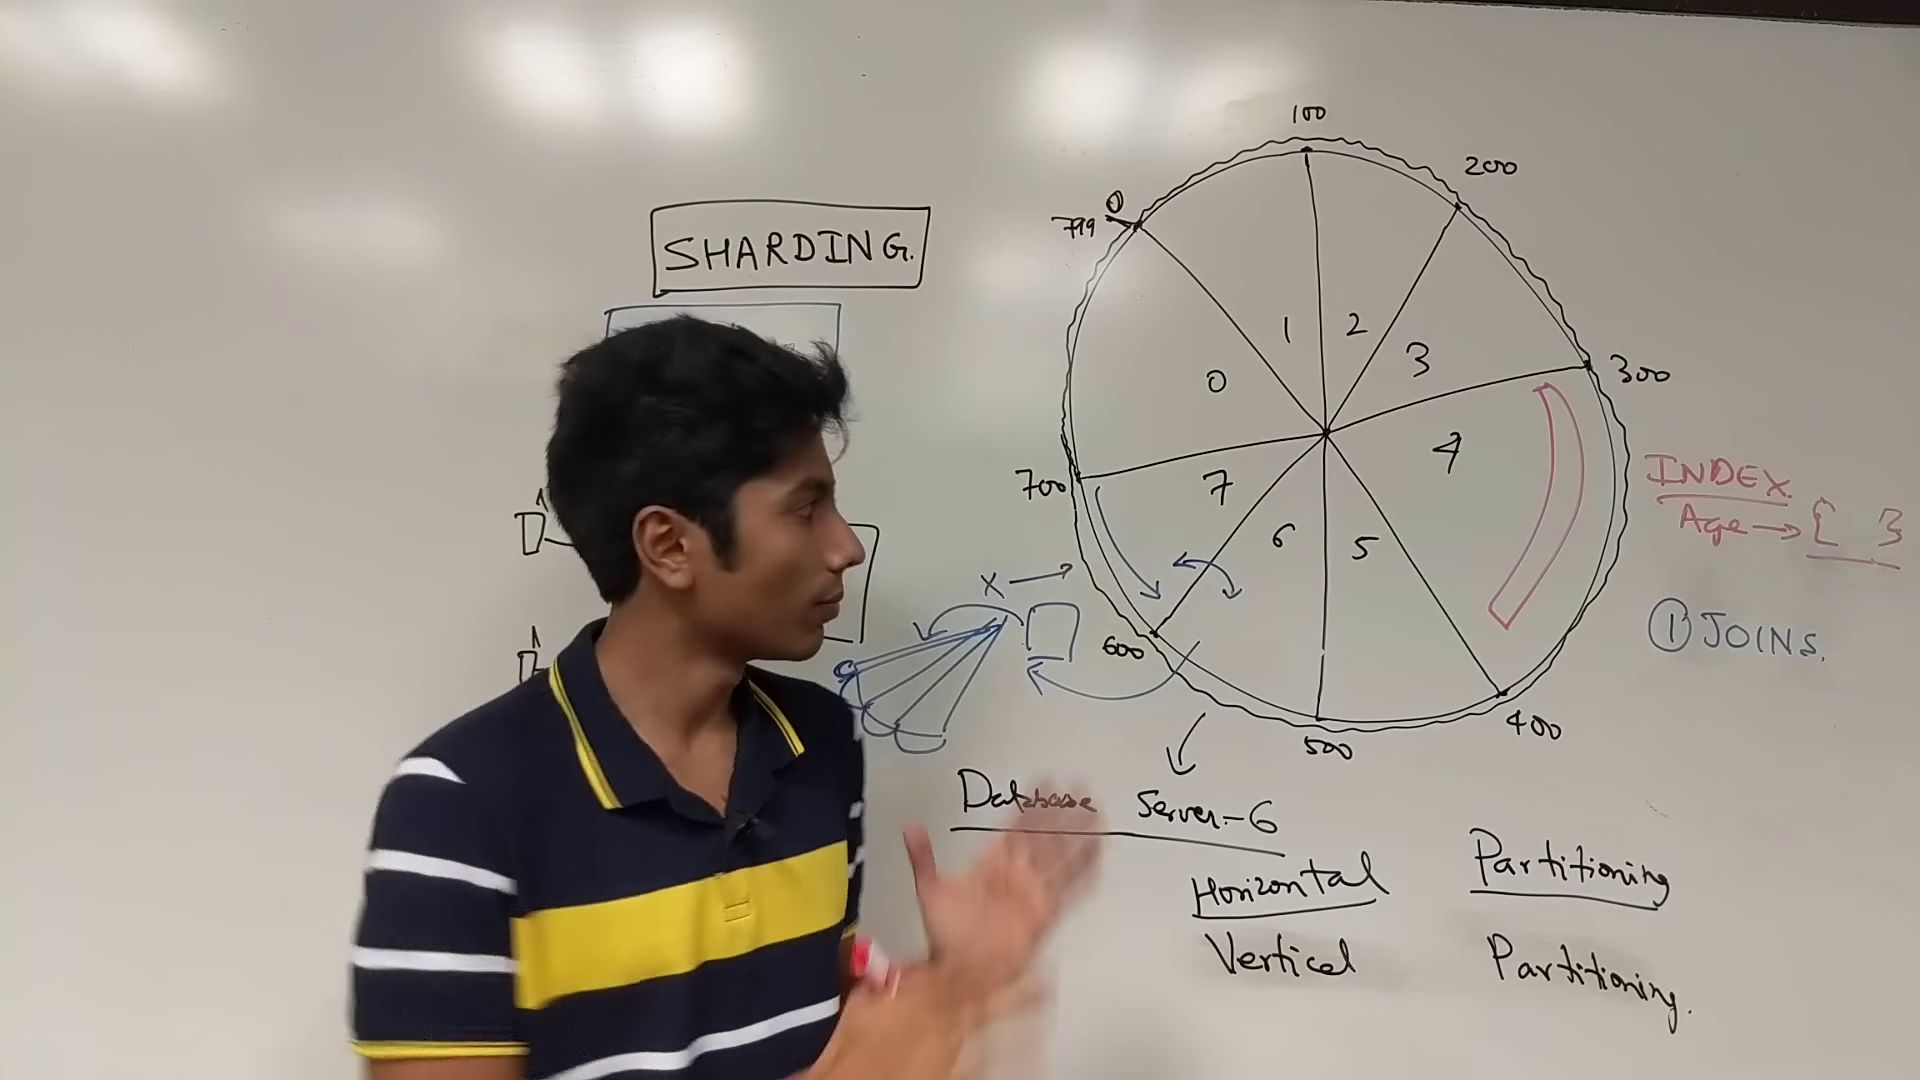 SHARDING.
100
200
0
799
300
1
2
3
0
4
700
7
6
5
INDEX
Age → [ }
X →
① JOINS.
600
400
500
Database Server-6
Horizontal Partitioning
Vertical Partitioning.